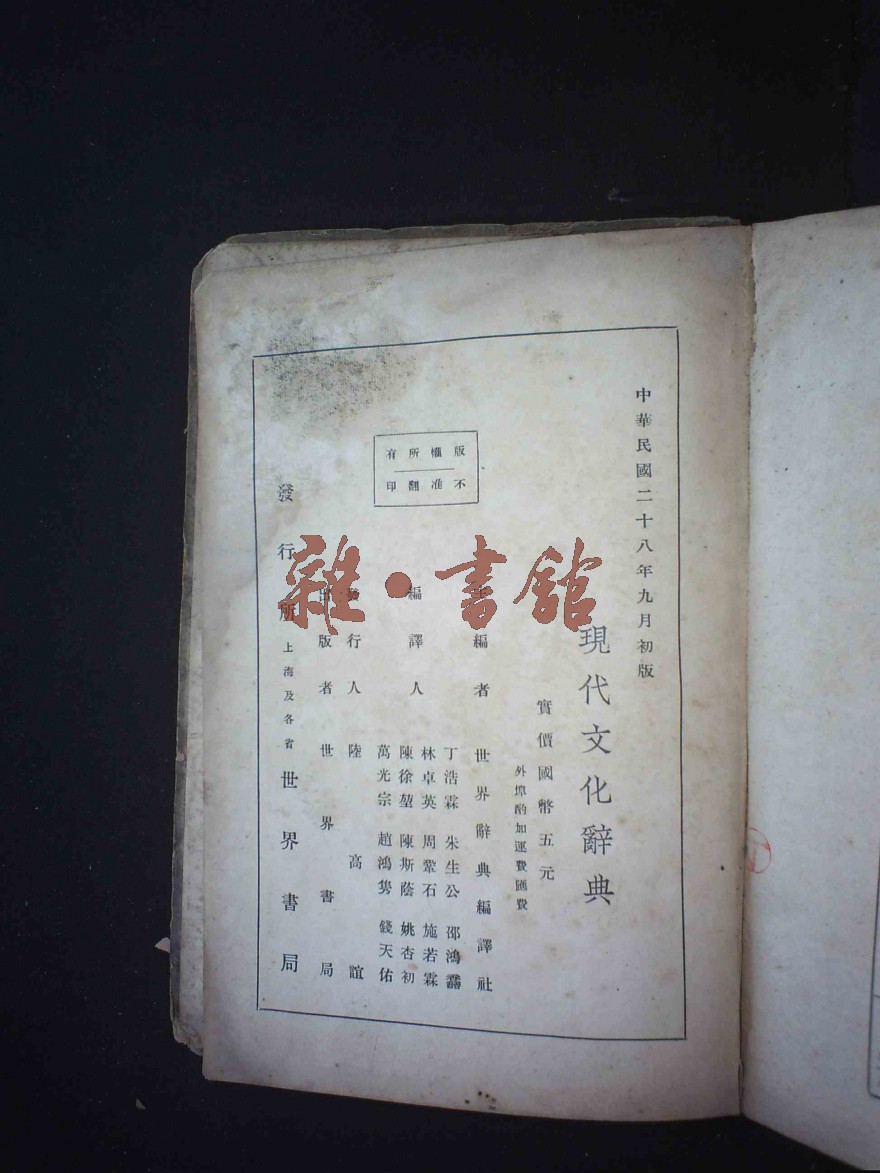 中華民國二十八年九月初版
現代文化辭典
實價國幣五元
外埠酌加運費匯費
主編者 世界辭典編譯社
編譯人
丁浩霖 朱生公 邵鴻馨
林卓英 周鞏石 施若霖
陳徐堃 陳斯蔭 姚杏初
萬光宗 趙鴻雋 錢天佑
發行人 陸高誼
出版者 世界書局
發行所 上海及各省 世界書局
版權所有
不准翻印
雜·書館